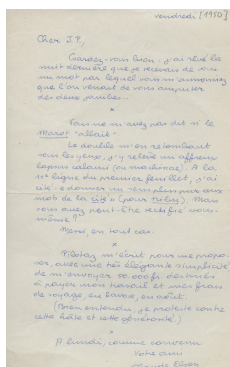 vendredi [1950]
Cher J.P.,
Gardez-vous bien : j'ai rêvé la
nuit dernière que je recevais de vous
un mot par lequel vous m'annonciez
que l'on venait de vous amputer
des deux jambes...
*
Vous ne m'avez pas dit si le
Marot "allait".
Le double m'en retombant
sous les yeux, j'y relève un affreux
lapsus calami (ou machinae). A la
11e ligne du premier feuillet, j'ai
cité donner un
mots de la cité (pour
vous avez peut-être rectifié vous-
même ?
Merci en tout cas.
*
m'écrit pour me propo-
ser, avec une très élégante simplicité
de m'envoyer 50.000 fr. destinés
à payer mon travail et mes frais
de voyage, en Sarre, en août.
(Bien entendu, je proteste contre
cette hâte et cette générosité.)
*
A lundi, comme convenu
Votre ami